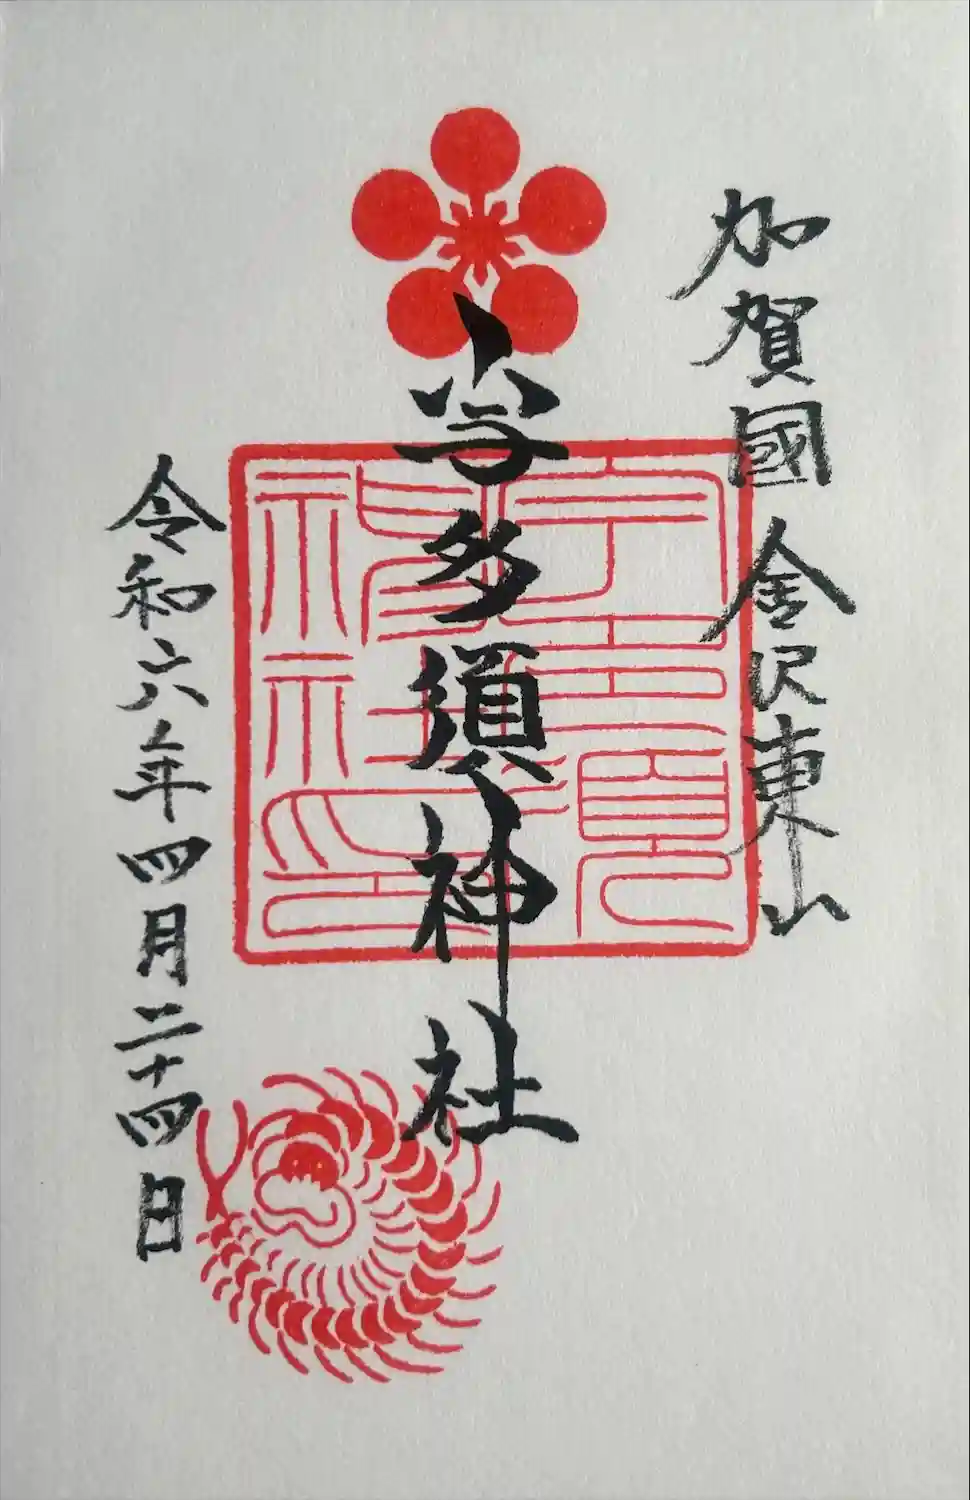 加賀國 金沢東山
宇多須神社
令和六年四月二十四日